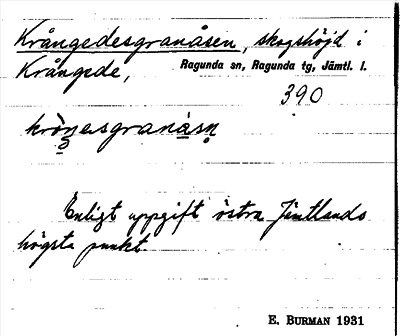 Krångedesgranåsen, skogshöjd i
Krångede, Ragunda sn, Ragunda tg, Jämtl. l.
390
Enligt uppgift östra Jämtlands
högsta punkt.
E. BURMAN 1931